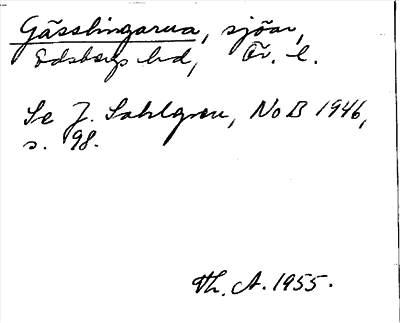 Gässlingarna, sjöar,
Edsbergs hd, Ör. l.
Se J. Sahlgren, NoB 1946,
s. 98.
Th. A. 1955.